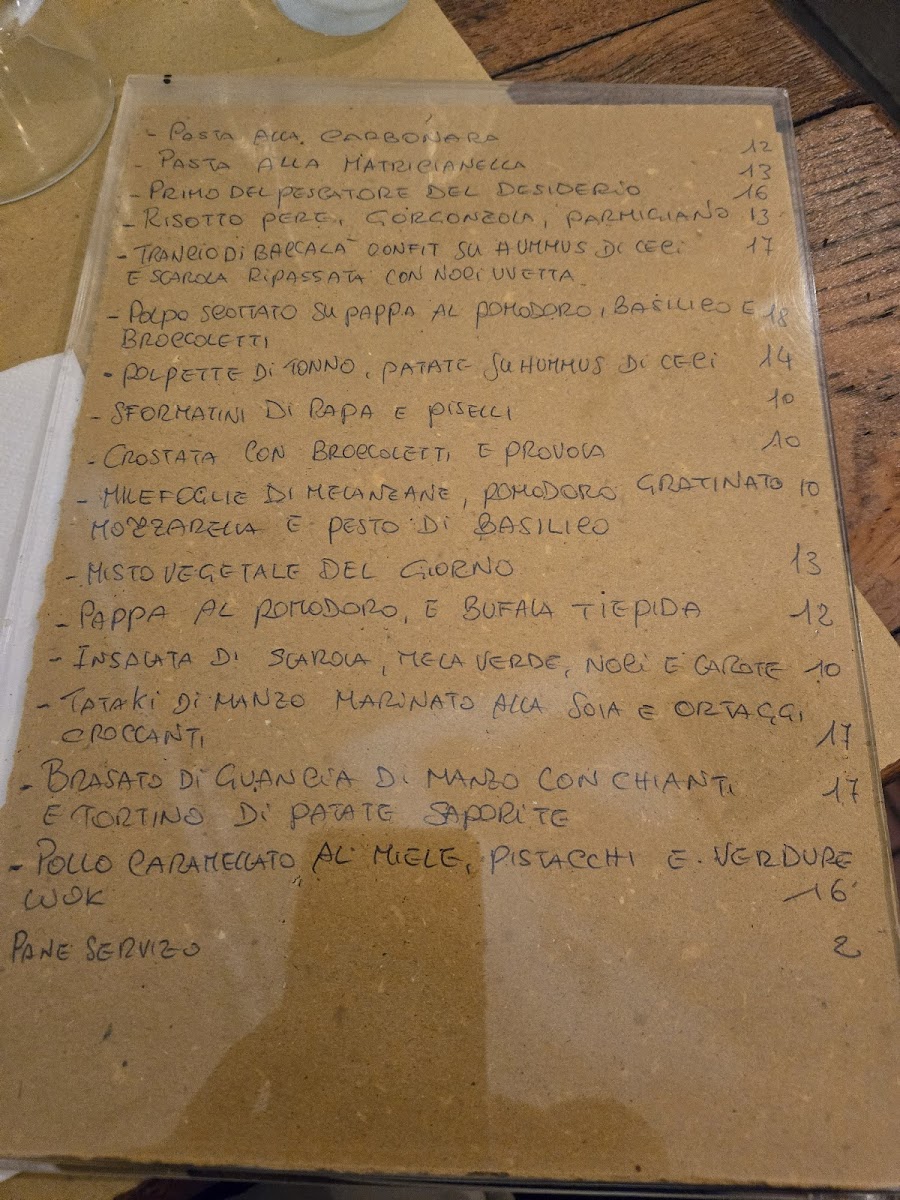 - PASTA ALLA CARBONARA 12
- PASTA ALLA MATRICIANELLA 13
- PRIMO DEL PESCATORE DEL DESIDERIO 16
- RISOTTO PERE, GORGONZOLA, PARMIGIANO 13
- TRANCIO DI BACCALA' CONFIT SU HUMMUS DI CECI 17
E SCAROLA RIPASSATA CON NOCI UVETTA
- POLPO SCOTTATO SU PAPPA AL POMODORO, BASILICO E 18
BROCCOLETTI
- POLPETTE DI TONNO, PATATE SU HUMMUS DI CECI 14
- SFORMATINI DI RAPA E PISELLI 10
- CROSTATA CON BROCCOLETTI E PROVOLA 10
- MILEFOGLIE DI MELANZANE, POMODORO GRATINATO 10
MOZZARELLA E PESTO DI BASILICO
- MISTO VEGETALE DEL GIORNO 13
- PAPPA AL POMODORO, E BUFALA TIEPIDA 12
- INSALATA DI SCAROLA, MELA VERDE, NOCI E CAROTE 10
- TATAKI DI MANZO MARINATO ALLA SOIA E ORTAGGI
CROCCANTI 17
- BRASATO DI GUANCIA DI MANZO CON CHIANTI 17
E TORTINO DI PATATE SAPORITE
- POLLO CARAMELLATO AL MIELE, PISTACCHI E VERDURE
WOK 16
PANE SERVIZO 2